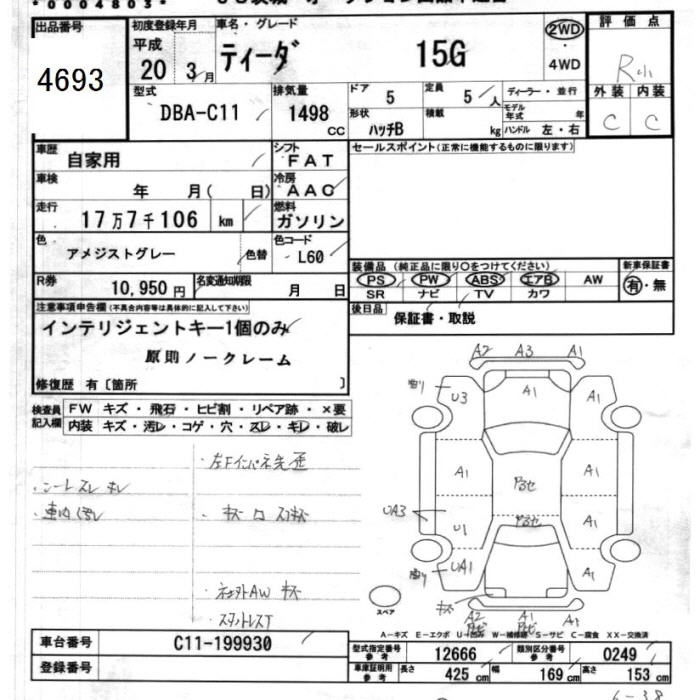 *0004803*
出品番号
4693
初度登録年月
平成
20 3月
車名・グレード
ティーダ 15G
2WD
・
4WD
評価点
R
外装 内装
C C
型式
DBA-C11
排気量
1498
CC
ドア
5
定員
5人
形状
ハッチB
積載
kg
ディーラー・並行
モデル年式 年
ハンドル 左・右
車歴
自家用
シフト
FAT
車検
年 月( 日)
冷房
AAC
走行
17万7千106 km
燃料
ガソリン
色
アメジストグレー
色替
色コード
L60
R券
10,950円
名変通知期限
月 日
セールスポイント(正常に機能するものに限ります)
装備品(純正品に限り○をつけてください)
PS PW ABS エアB AW
SR ナビ TV カワ
新車保証書
有・無
後日品
保証書・取説
注意事項申告欄(不具合内容等は具体的に記入して下さい)
インテリジェントキー1個のみ
原則ノークレーム
修復歴 有〔箇所 〕
検査員記入欄
FW キズ・飛石・ヒビ割・リペア跡・×要
内装 キズ・汚レ・コゲ・穴・スレ・キレ・破レ
・左Fインパネ先歪
・シートスレ キレ
・車内汚レ
A2 A3 A1
U3 A1 A1
A1 A1
UA3 U1 A1
UA1 A1
キズ
A2 A1
スペア
A-キズ E-エクボ U-凹み W-補修跡 S-サビ C-腐食 XX-交換済
車台番号
C11-199930
登録番号
型式指定番号参考
12666
類別区分番号参考
0249
車庫証明用参考
長さ 425cm
幅 169cm
高さ 153cm
6-38